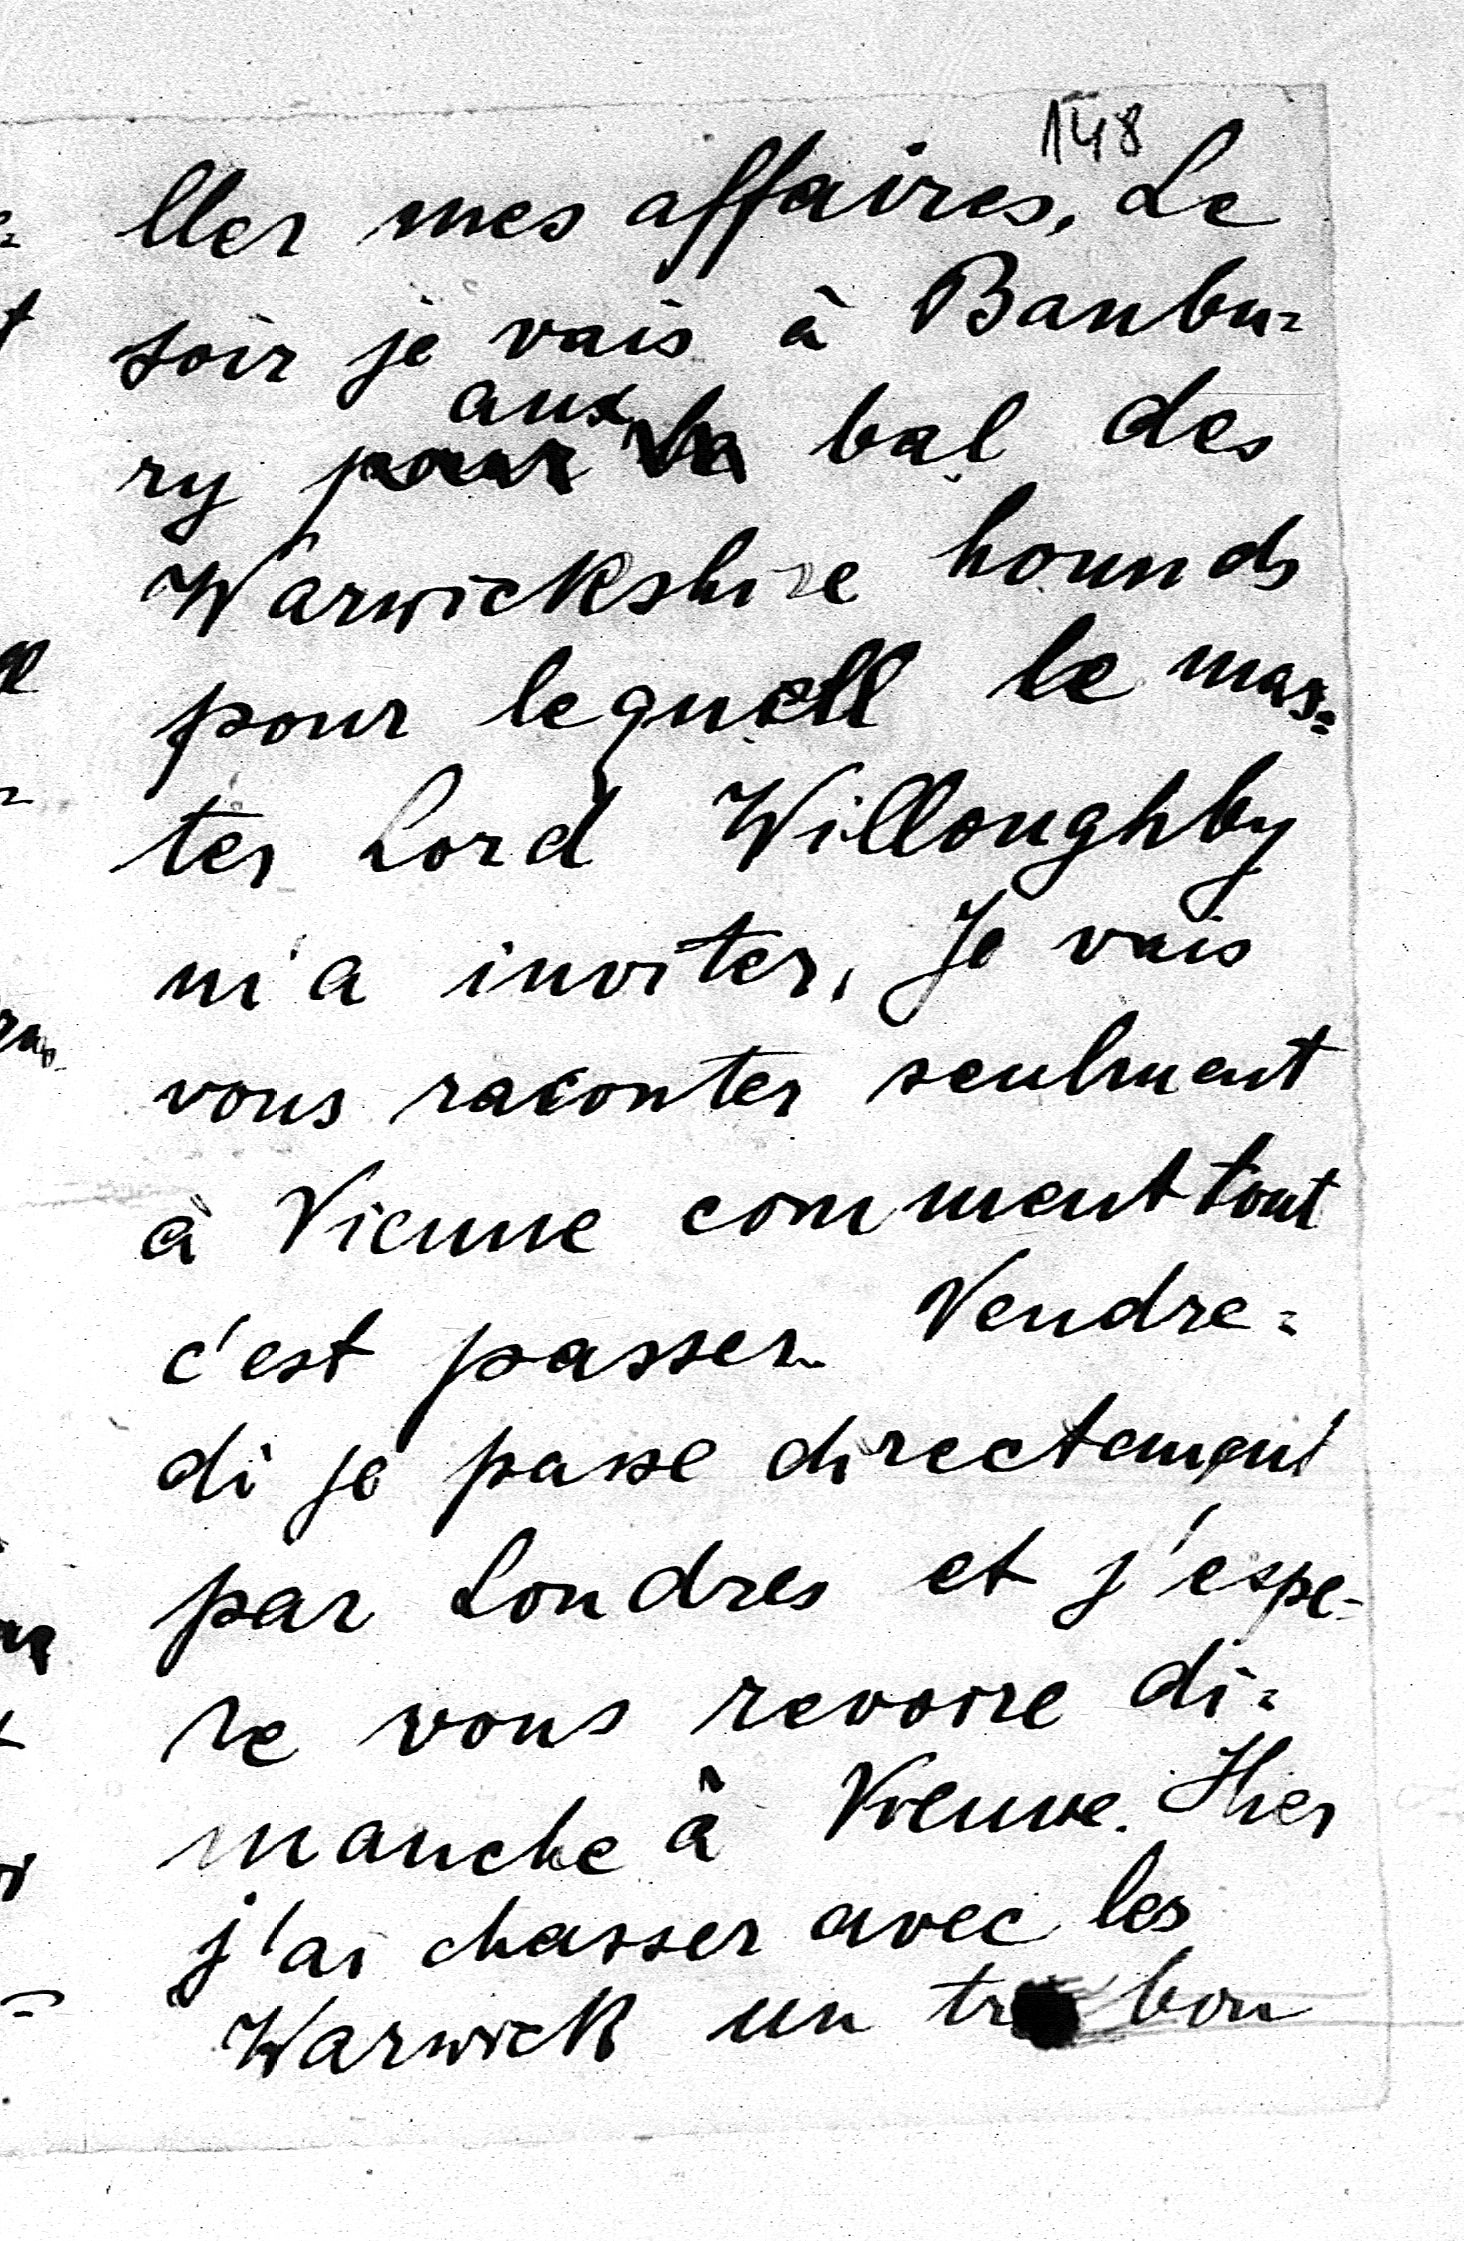 148
ller mes affaires. Le
soir je vais à Banbu=
aux
ry pour bal des
Warwickshire hounds
pour lequell le mas=
ter Lord Willoughby
m'a inviter. Je vais
vous raconter seulment
à Vienne comment tout
c'est passer. Vendre=
di je passe directement
par Londres et j'espe-
re vous revoire di=
manche à Vienne. Hier
j'ai chasser avec les
Warwick un bon